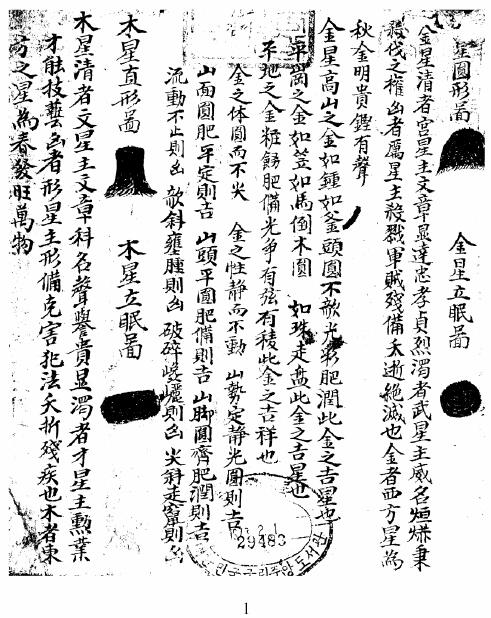 星圓形啚
金星立眠啚
金星清者官星主文章显達忠孝貞烈濁者武星主威名烜爀秉
殺伐之權凶者厲星主殺戮軍賊殘備夭逝絶滅也金者西方星為
秋金明貴鏗有聲
金星高山之金如鍾如釜頭圓不欹光彩肥潤此金之吉星也
平崗之金如笠如馬倒木圓 如珠走盘此金之吉星也
平地之金糚餙肥備光爭有弦有稜此金之吉祥也
金之体圓而不尖 金之性静而不動 山勢定静光圓則吉
山面圓肥平定則吉 山頭平圓肥備則吉 山脚圓齊肥潤則吉
流動不止則凶 欹斜壅腫則凶 破碎巉巗則凶 尖斜走竄則凶
木星直形啚
木星立眠啚
木星清者文星主文章科名聲譽貴显濁者才星主勲業
才能技藝凶者形星主形備克害犯法夭折殘疾也木者東
方之星為春發旺萬物
29483
1